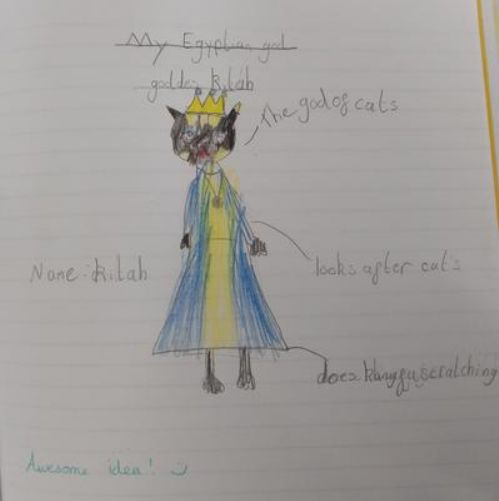 My Egyptian god
goddes Kitah
the god of cats
Name: Kitah
looks after cat's
does Kungfu scratching
Awesome idea!